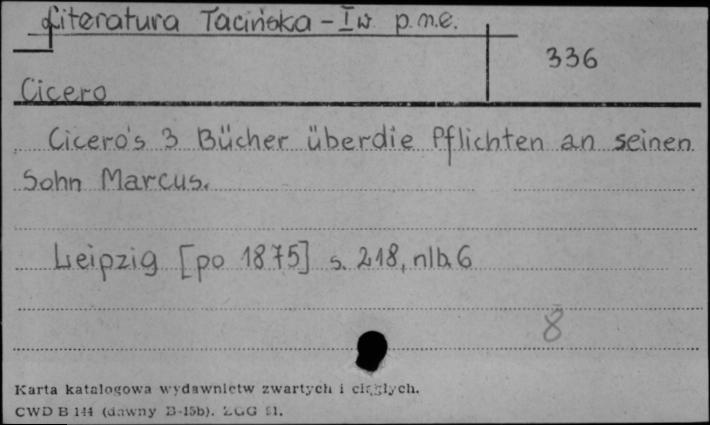 Literatura Łacińska - I w. p.n.e.
336
Cicero
Cicero's 3 Bücher über die Pflichten an seinen
Sohn Marcus.
Leipzig [po 1875] s. 218, nlb. 6
8
Karta katalogowa wydawnictw zwartych i ciągłych.
CWD B 144 (dawny B-15b).